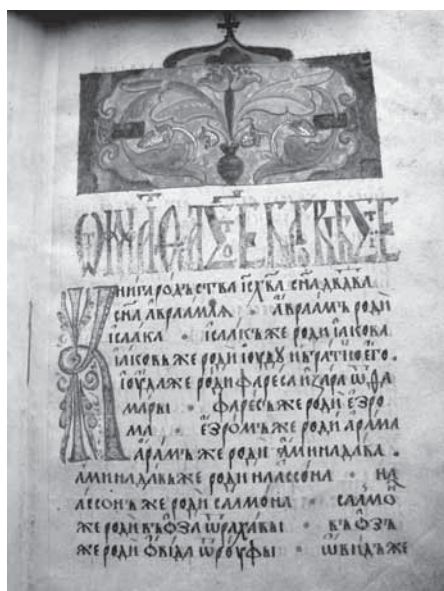 Книга родъства іс҃ х҃ва сн҃а дв҃два
сн҃а авраамлѧ · авраамъ роди
ісаака · ісаакъ же роди іакова
іаковъ же роди іоуду и братию его ·
іоуда же роди фареса и зара ѿ ѳа
мары · фаресъ же роди езро
ма · езромъ же роди арама
арамъ же роди аминадава ·
аминадавъ же роди наассона · на
ассонъ же роди салмона · салмѡ
же роди въѡза ѿ рахавы · въѡзъ
же роди ѡвида ѿ роуфы · ѡвидъ же